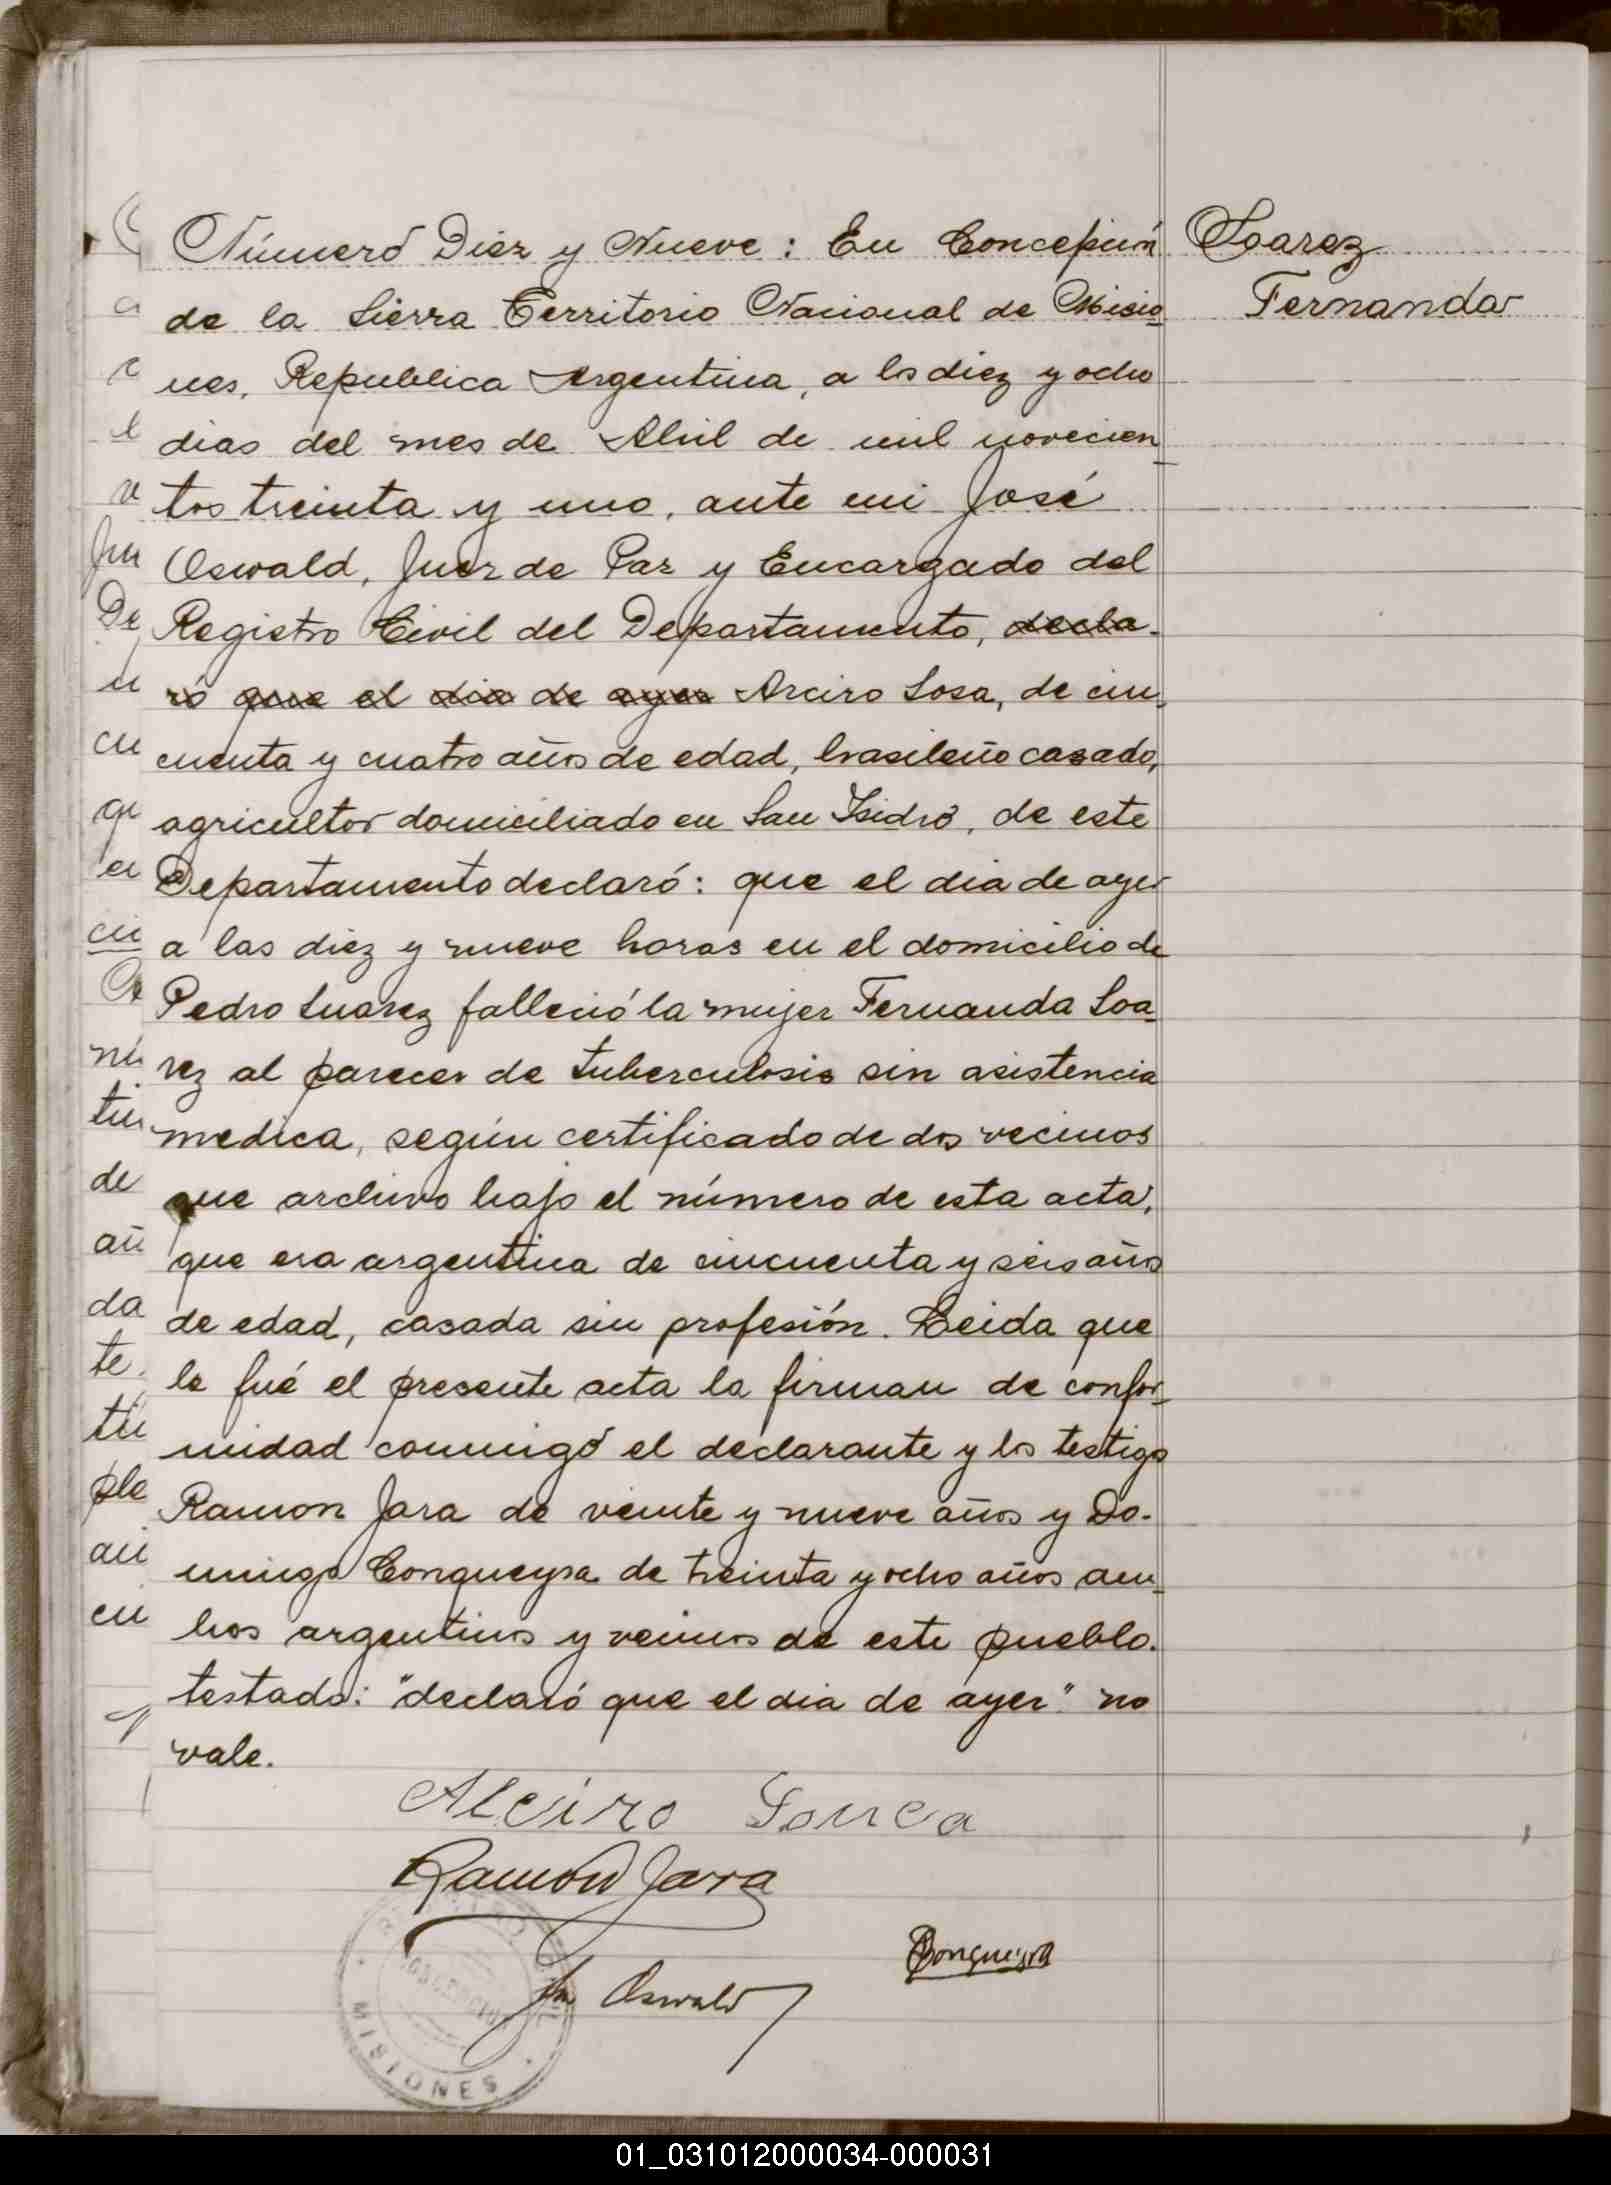 Número Diez y Nueve: En Concepción
Soarez
Fernanda
de la Sierra Territorio Nacional de Misio
nes, Republica Argentina, a los diez y ocho
dias del mes de Abril de mil novecien
tos treinta y uno, ante mi José
Oswald, Juez de Paz y Encargado del
Registro Civil del Departamento, decla-
ró que el dia de ayer Arciro Sosa, de cin
cuenta y cuatro años de edad, brasileño casado,
agricultor domiciliado en San Isidro, de este
Departamento declaró: que el dia de ayer
a las diez y nueve horas en el domicilio de
Pedro Suarez falleció la mujer Fernanda Soa
rez al parecer de tuberculosis sin asistencia
medica, según certificado de dos vecinos
que archivo bajo el número de esta acta,
que era argentina de cincuenta y seis años
de edad, casada sin profesión. Leida que
le fué el presente acta la firman de confor
midad conmigo el declarante y los testigo
Ramon Jara de veinte y nueve años y Do-
mingo Conqueyra de treinta y ocho años am
bos argentinos y vecinos de este pueblo.
testado: "declaró que el dia de ayer" no
vale.
Alciro Souca
Ramon Jara
Conqueyra
Oswald
MISIONES
01_031012000034-000031